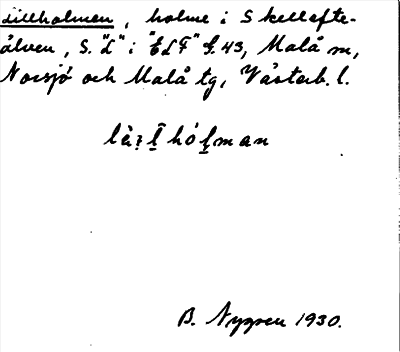 Lillholmen, holme i Skellefte-
älven, S. "L" i "ELF" f. 43, Malå m,
Norsjö och Malå tg, Västerb. l.
B. Nygren 1930.